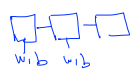 w,b w,b